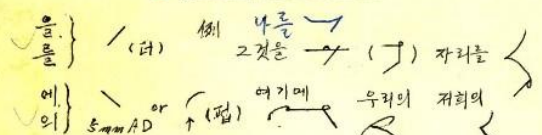 을.
를 } (더) 例 나를 그것을 ( ) 자리를
에.
의 } 5mm AD or ↑ (펍) 여기에 우리의 저희의